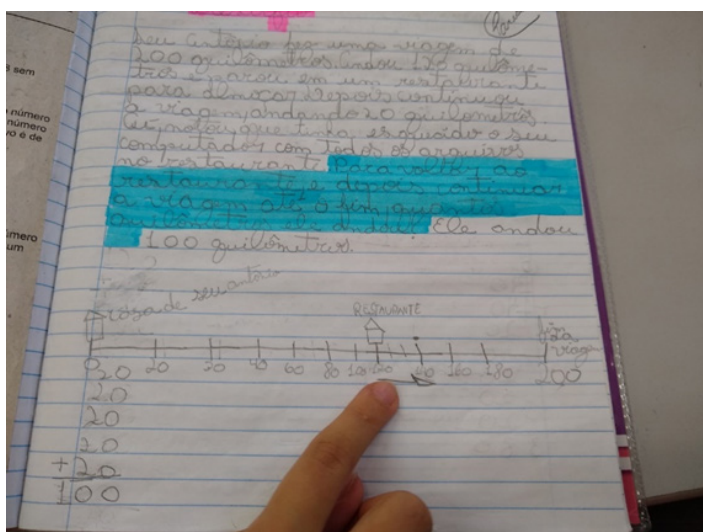 s sem
número
número
vo e de
mero
um
Seu Antônio fez uma viagem de
200 quilômetros. Andou 120 quilôme-
tros e parou em um restaurante
para almoçar. Depois continuou
a viagem, andando 20 quilômetros
notou que tinha esquecido o seu
computador com todos os arquivos
no restaurante. Para voltar ao
restaurante e depois continuar
a viagem até o fim, quantos
quilômetros ele andou? Ele andou
100 quilômetros.
casa de seu antônio
RESTAURANTE
fim da
viagem
0 20 40 60 80 100 120 160 180 200
20
20
20
20
+ 20
100